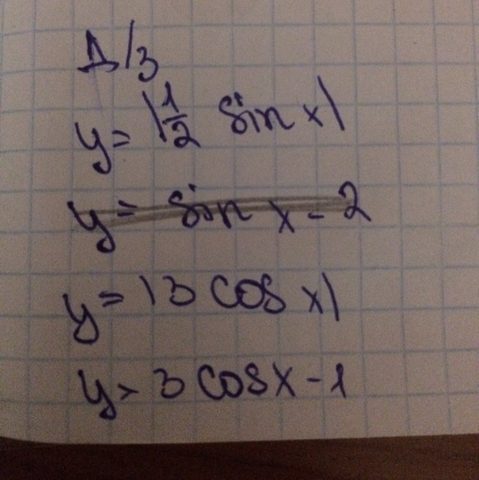 Д/З
y = |1/2 sin x|
y = sin x - 2
y = |3 cos x|
y = 3 cos x - 1